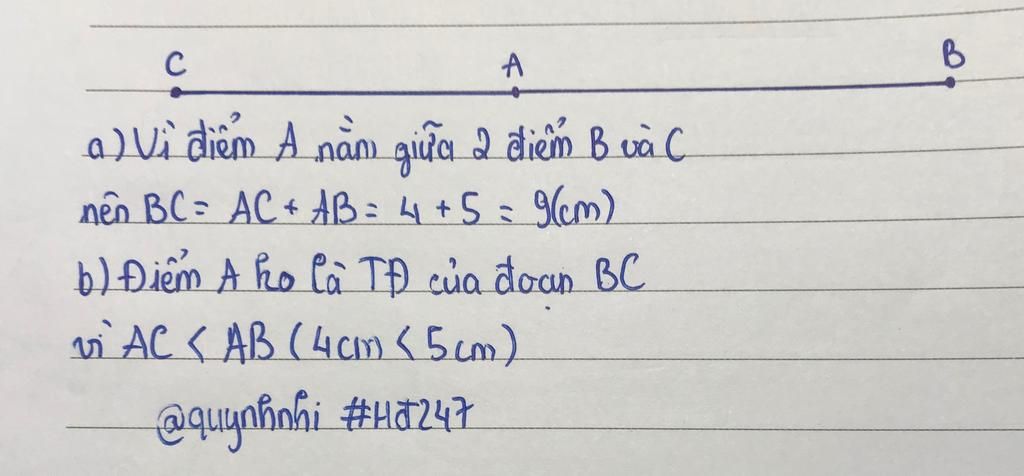 C A B
a) Vì điểm A nằm giữa 2 điểm B và C
nên BC = AC + AB = 4 + 5 = 9(cm)
b) Điểm A ko là TĐ của đoạn BC
vì AC < AB ( 4cm < 5cm )
@quynhnhi #Hđ247